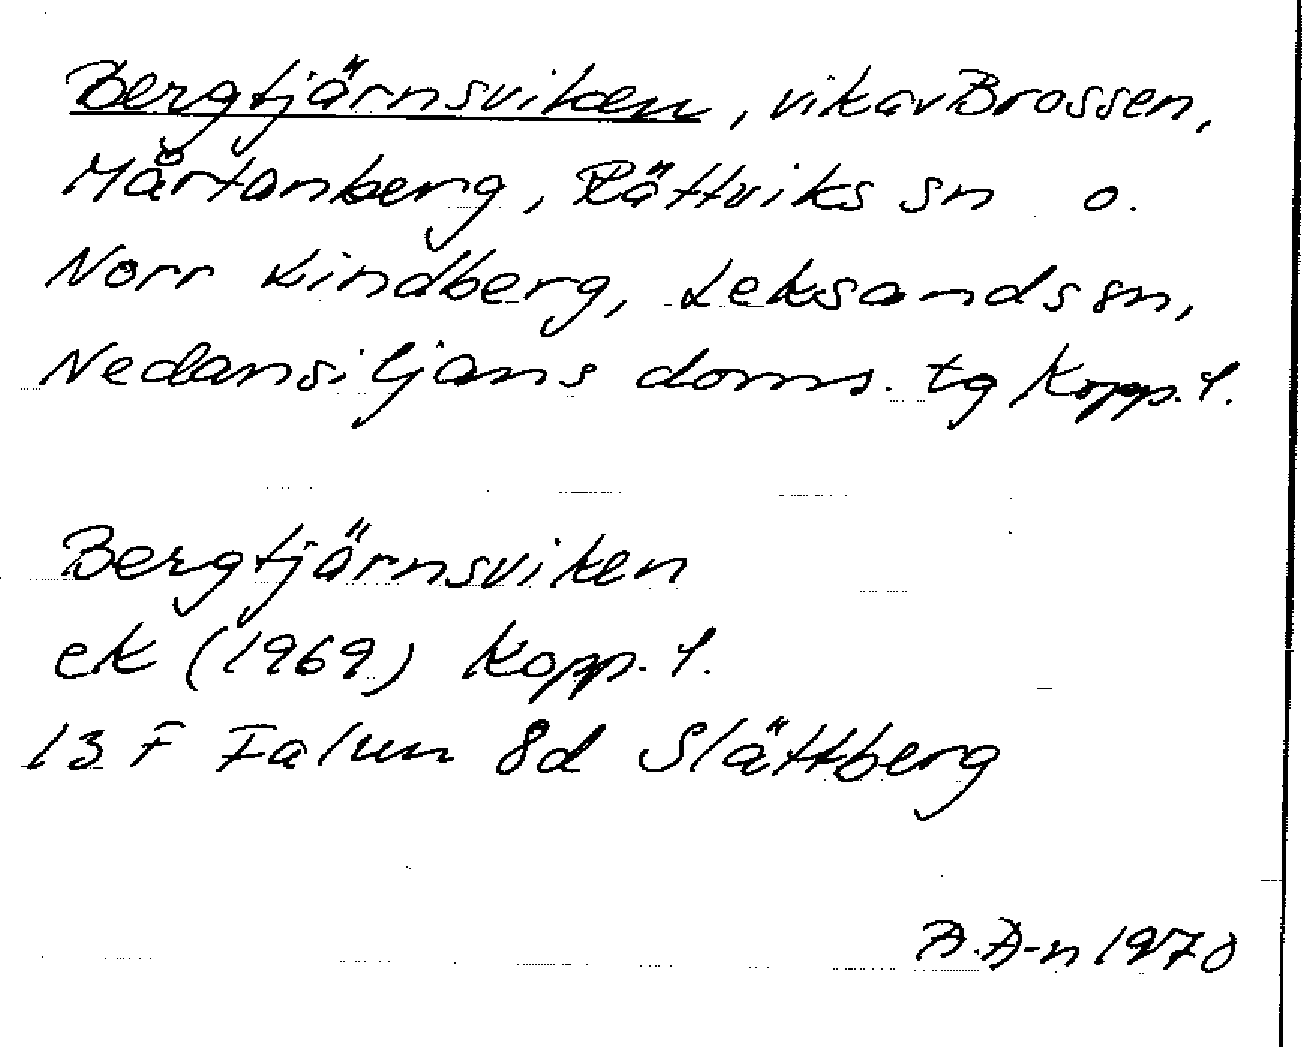 Bergtjärnsviken, vik av Brossen,
Mårtanberg, Rättviks sn o.
Norr Lindberg, Leksands sn,
Nedansiljans doms. tg Kopp. l.
Bergtjärnsviken
ek (1969) Kopp. l.
13 F Falun 8d Slättberg
A. A-n 1970